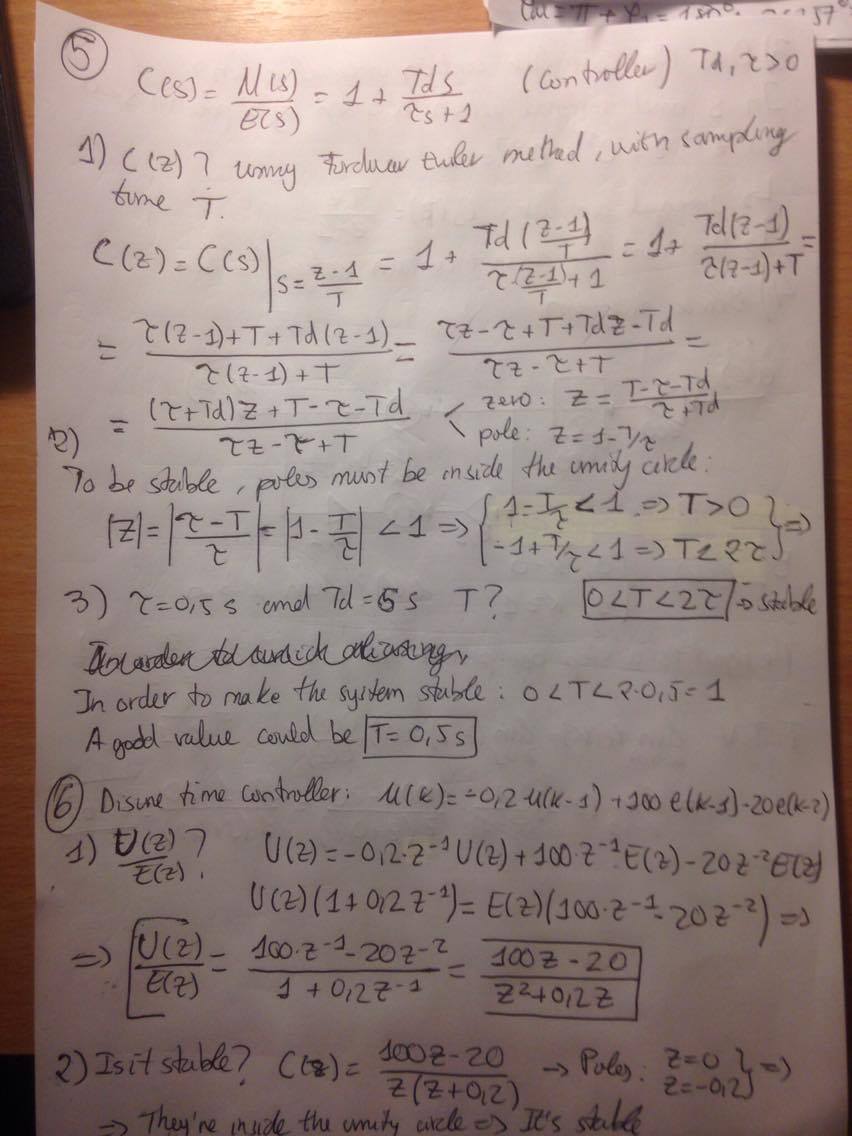 ⑤
C(s) = U(s)/E(s) = 1 + Td s/(τs+1) (controller) Td, τ>0
1) C(z)? using Forduar Euler method, with sampling
time T.
C(z) = C(s)|s=(z-1)/T = 1 + Td((z-1)/T)/(τ(z-1)/T+1) = 1 + Td(z-1)/(τ(z-1)+T) =
= (τ(z-1)+T+Td(z-1))/(τ(z-1)+T) = (τz-τ+T+Tdz-Td)/(τz-τ+T) =
= ((τ+Td)z+T-τ-Td)/(τz-τ+T) < zero: z = (T-τ-Td)/(τ+Td)
pole: z = 1-T/τ
2)
To be stable, poles must be inside the unity circle:
|z| = |(τ-T)/τ| = |1-T/τ| < 1 => { 1-T/τ < 1 => T>0 } =>
{ -1+T/τ < 1 => T<2τ }
3) τ=0,5 s and Td=5 s T? 0<T<2τ → stable
In order to make the system stable: 0<T<2·0,5=1
A godd value could be T=0,5s
⑥ Discrte time controller: u(k)=-0,2·u(k-1)+100e(k-1)-20e(k-2)
1) U(z)/E(z)? U(z)=-0,2·z⁻¹U(z)+100·z⁻¹E(z)-20z⁻²E(z)
U(z)(1+0,2z⁻¹)=E(z)(100·z⁻¹-20z⁻²) =>
=> U(z)/E(z) = (100·z⁻¹-20z⁻²)/(1+0,2z⁻¹) = (100z-20)/(z²+0,2z)
2) Is it stable? C(z) = (100z-20)/(z(z+0,2)) → Poles: z=0 } =>
z=-0,2 }
=> They're inside the unity circle => It's stable